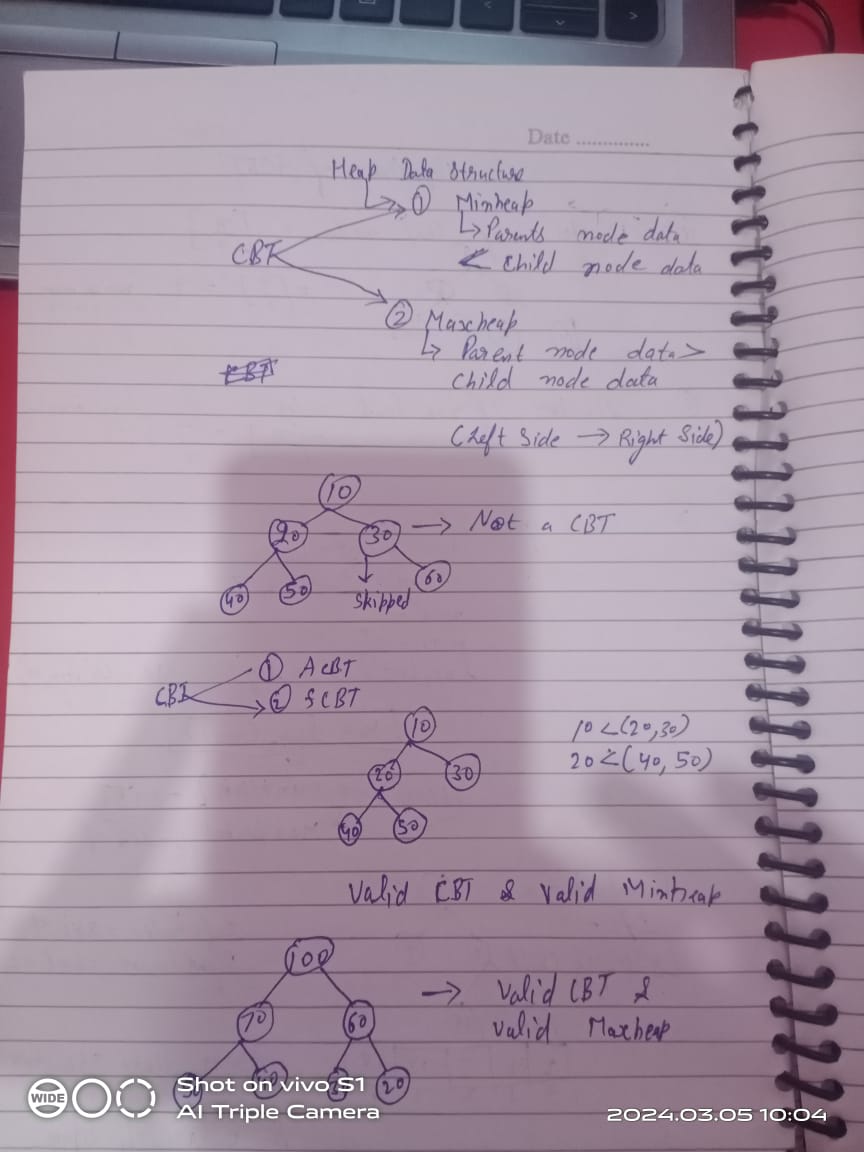 Date ..............
Heap Data Structure
① Minheap
Parents node data
CBT
< Child node data
② Maxheap
Parent node data >
Child node data
(Left Side → Right Side)
10
20 30 → Not a CBT
40 50 Skipped 60
① ACBT
CBT
② SCBT
10
10 < (20,30)
20 30
20 < (40, 50)
40 50
Valid CBT & Valid Minheap
100
→ Valid CBT &
70 60
Valid Maxheap
20
WIDE
Shot on vivo S1
AI Triple Camera
2024.03.05 10:04